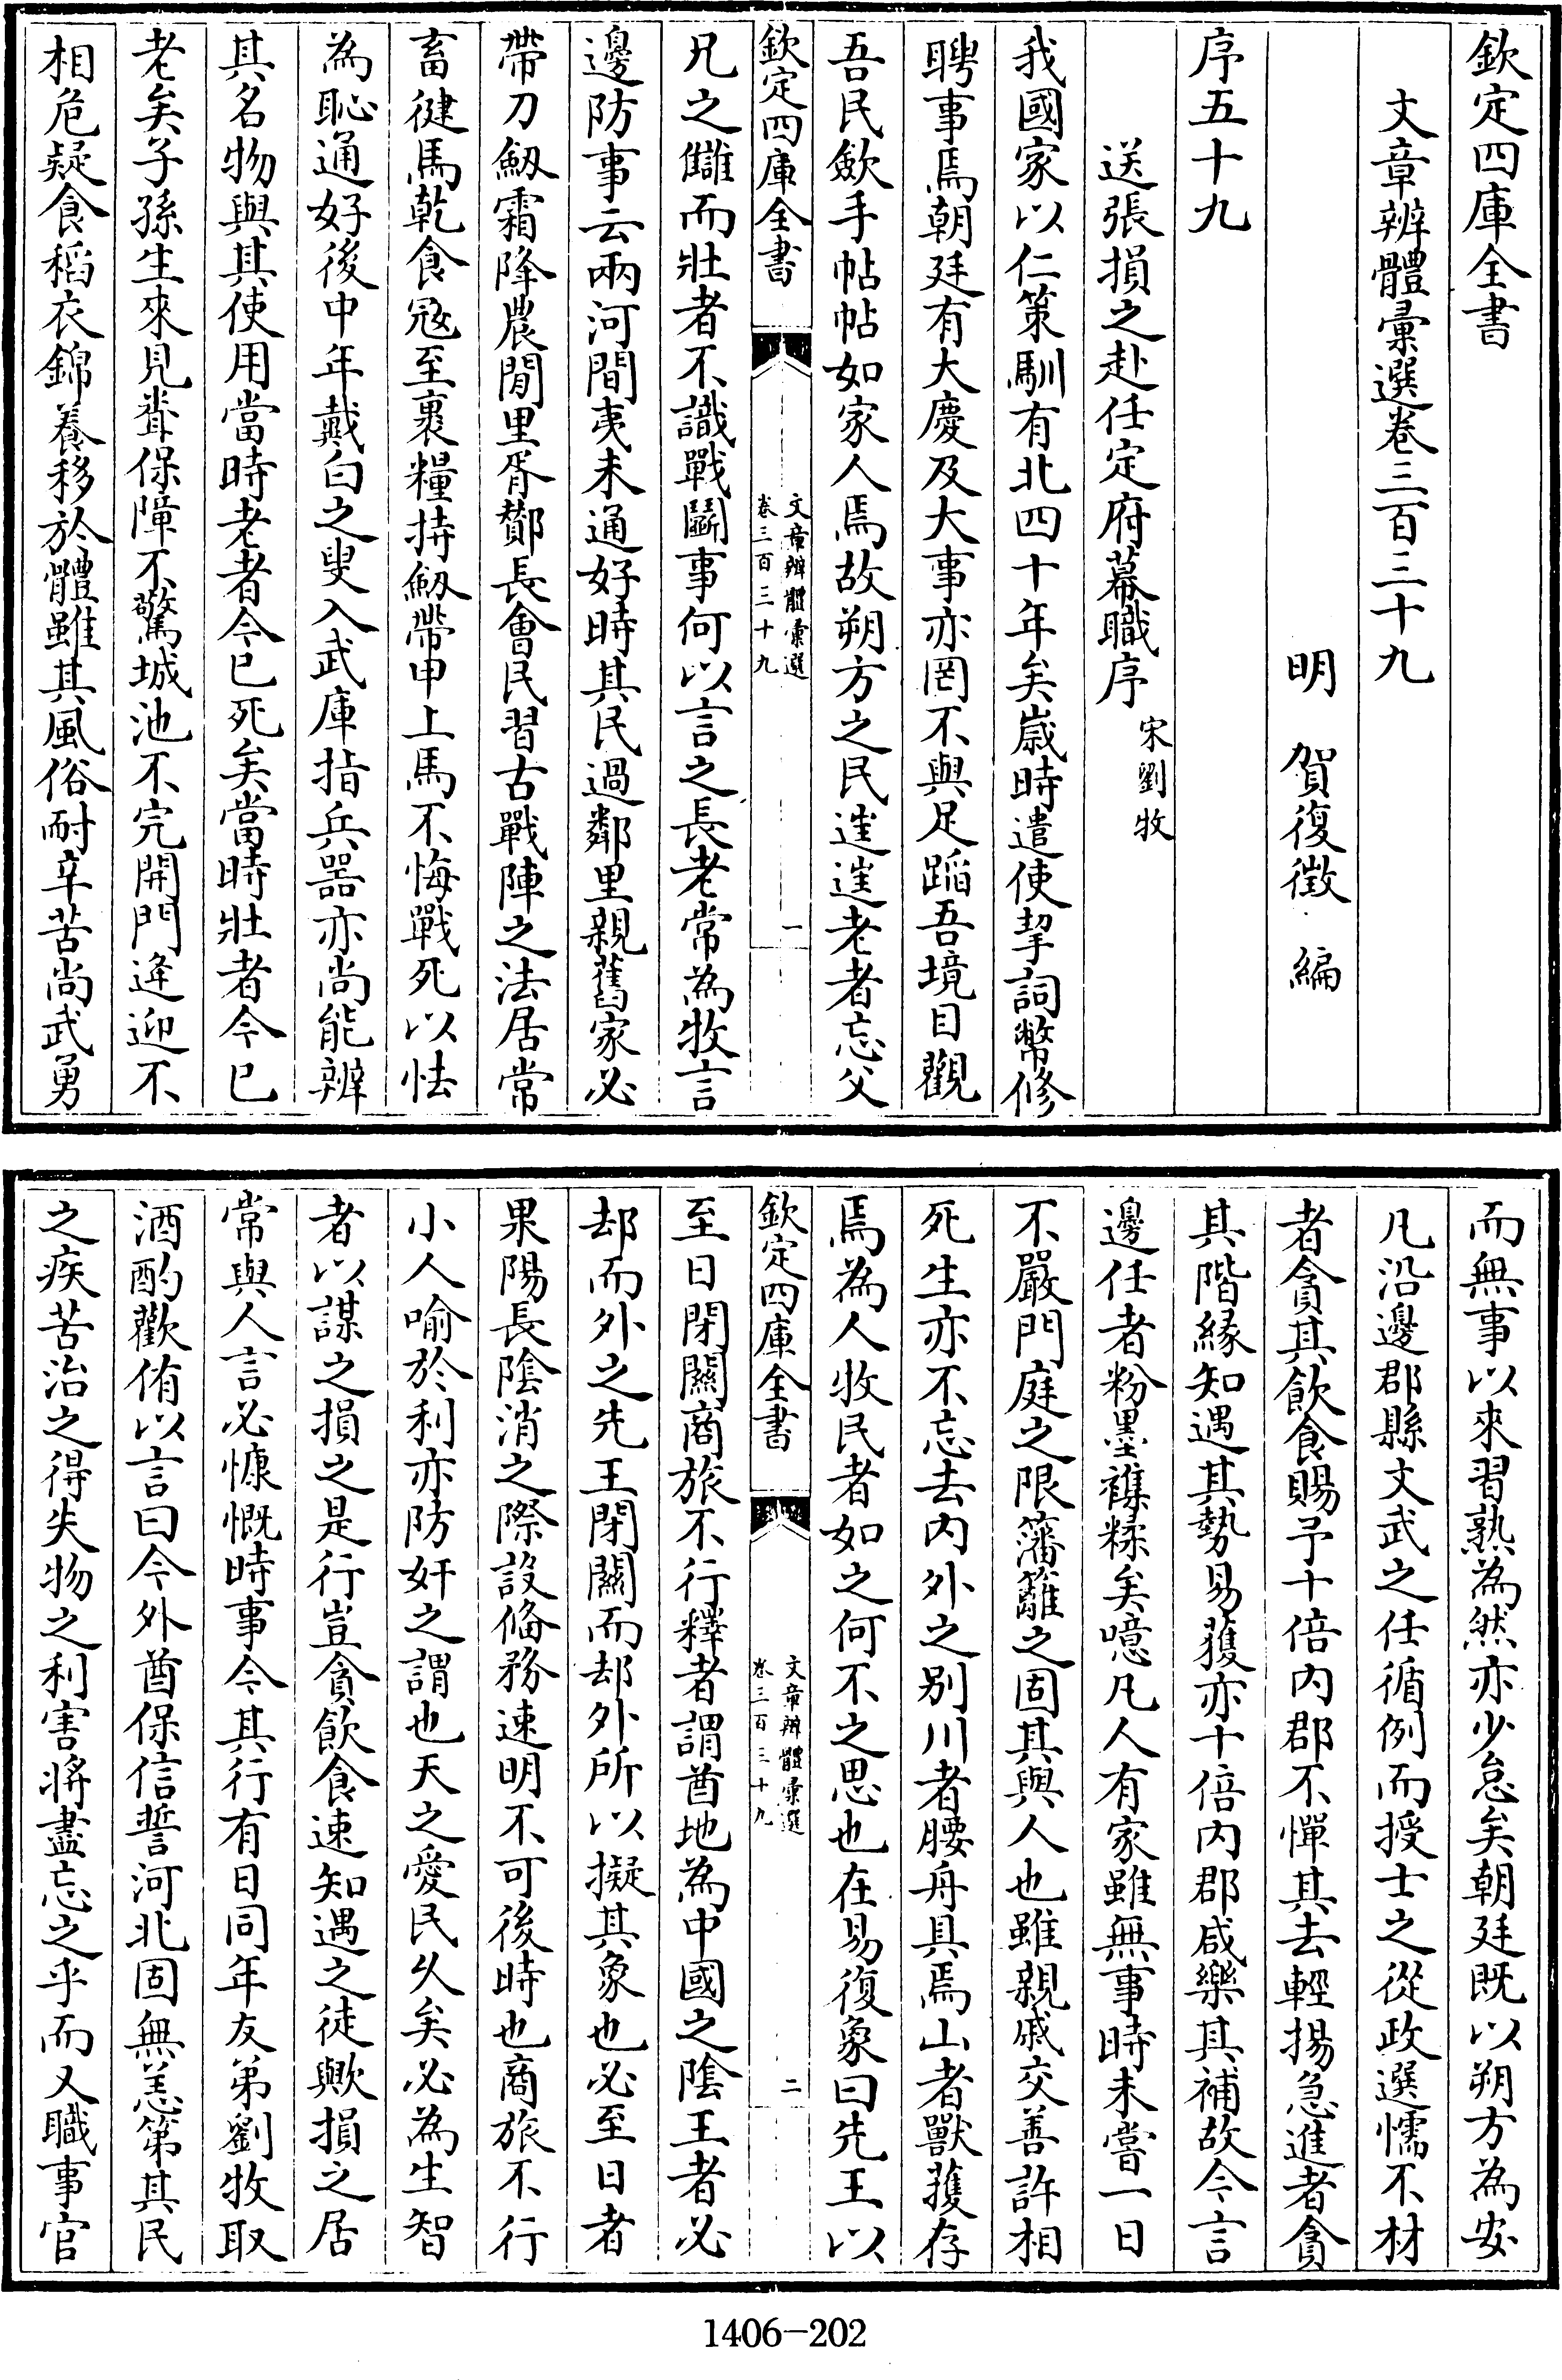 欽定四庫全書
文章辨體彙選卷三百三十九
明 賀復徵 編
序五十九
送張損之赴任定府幕職序宋劉牧
我國家以仁策馴有北四十年矣歲時遣使挈詞幣修
聘事焉朝廷有大慶及大事亦罔不與足蹈吾境目觀
吾民歛手帖帖如家人焉故朔方之民逹逹老者忘父
欽定四庫全書 文章辨體彙選 卷三百三十九 一
兄之讎而壯者不識戰鬭事何以言之長老常為牧言
邊防事云兩河間夷未通好時其民過鄰里親舊家必
帶刀劒霜降農閒里胥酇長會民習古戰陣之法居常
畜健馬乾食冦至裹糧持劒帶甲上馬不悔戰死以怯
為恥通好後中年戴白之叟入武庫指兵器亦尚能辨
其名物與其使用當時老者今已死矣當時壯者今已
老矣子孫生來見耸保障不驚城池不完開門逄迎不
相危疑食稻衣錦養移於體雖其風俗耐辛苦尚武勇
而無事以來習熟為然亦少怠矣朝廷既以朔方為安
凡沿邊郡縣文武之任循例而授士之從政選懦不材
者貪其飲食賜予十倍内郡不憚其去輕揚急進者貪
其階緣知遇其勢易獲亦十倍内郡咸樂其補故今言
邊任者粉墨襍糅矣噫凡人有家雖無事時未嘗一日
不嚴門庭之限藩籬之固其與人也雖親戚交善許相
死生亦不忘去内外之别川者腰舟具焉山者獸蒦存
焉為人牧民者如之何不之思也在易復象曰先王以
欽定四庫全書 文章辨體彙選 卷三百三十九 二
至日閉關商旅不行釋者謂酋地為中國之陰王者必
却而外之先王閉關而却外所以擬其象也必至日者
果陽長陰消之際設俻務速明不可後時也商旅不行
小人喻於利亦防奸之謂也天之愛民久矣必為生智
者以謀之損之是行豈貪飲食速知遇之徒歟損之居
常與人言必慷慨時事今其行有日同年友弟劉牧取
酒酌歡侑以言曰今外酋保信誓河北固無恙第其民
之疾苦治之得失物之利害將盡忘之乎而又職事官
1406-202